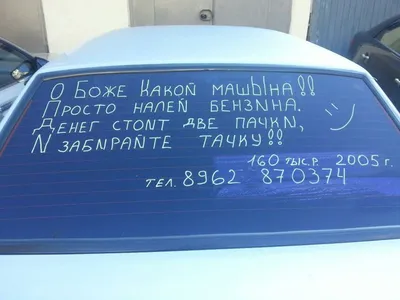 О Боже Какой машЫна!!
Просто налей бензина.
Денег стоит две пачки,
И забирайте тачку!!
160 тыс.р. 2005 г.
тел. 8962 870374